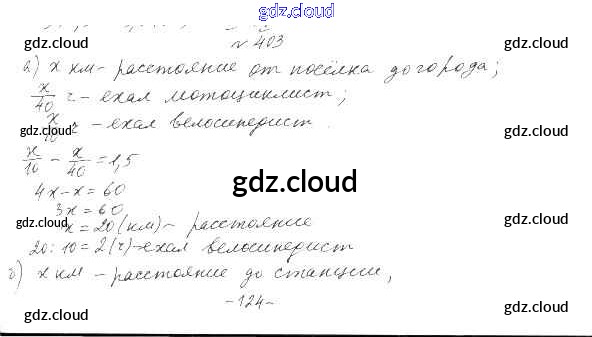 gdz.cloud
gdz.cloud № 403 gdz.cloud
а) x км - расстояние от посёлка до города;
x/40 ч - ехал мотоциклист;
x/10 ч - ехал велосипедист.
gdz.cloud gdz.cloud
x/10 - x/40 = 1,5
4x - x = 60
gdz.cloud
3x = 60
gdz.cloud gdz.cloud
x = 20 (км) - расстояние
20 : 10 = 2 (ч) - ехал велосипедист
б) x км - расстояние до станции,
gdz.cloud - 124 - gdz.cloud
gdz.cloud